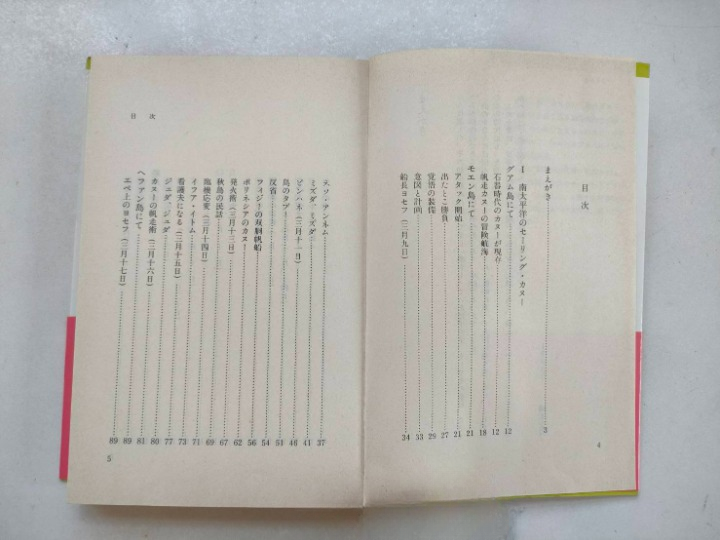 目次
まえがき 3
1 南太平洋のセーリング・カヌー
グアム島にて 12
石器時代のカヌーが現存 12
帆走カヌーの冒険航海 18
モエン島にて 21
アタック開始 21
出たとこ勝負 27
覚悟の装備 29
意図と計画 33
船長ヨセフ(三月九日) 34
4
目次
ミズダ、ミズダ 41
ピンハネ(三月十一日) 46
島のタブー 51
反省 54
フィジーの双胴帆船 56
ポリネシアのカヌー 62
発火術(三月十三日) 67
秋島の民話 69
臨機応変(三月十四日) 71
イファア・イトム 73
看護夫になる(三月十五日) 77
ジュダ、ジュダ 80
カヌーの帆走術(三月十六日) 81
ヘファン島にて 89
エペ上のヨセフ(三月十七日) 89
5